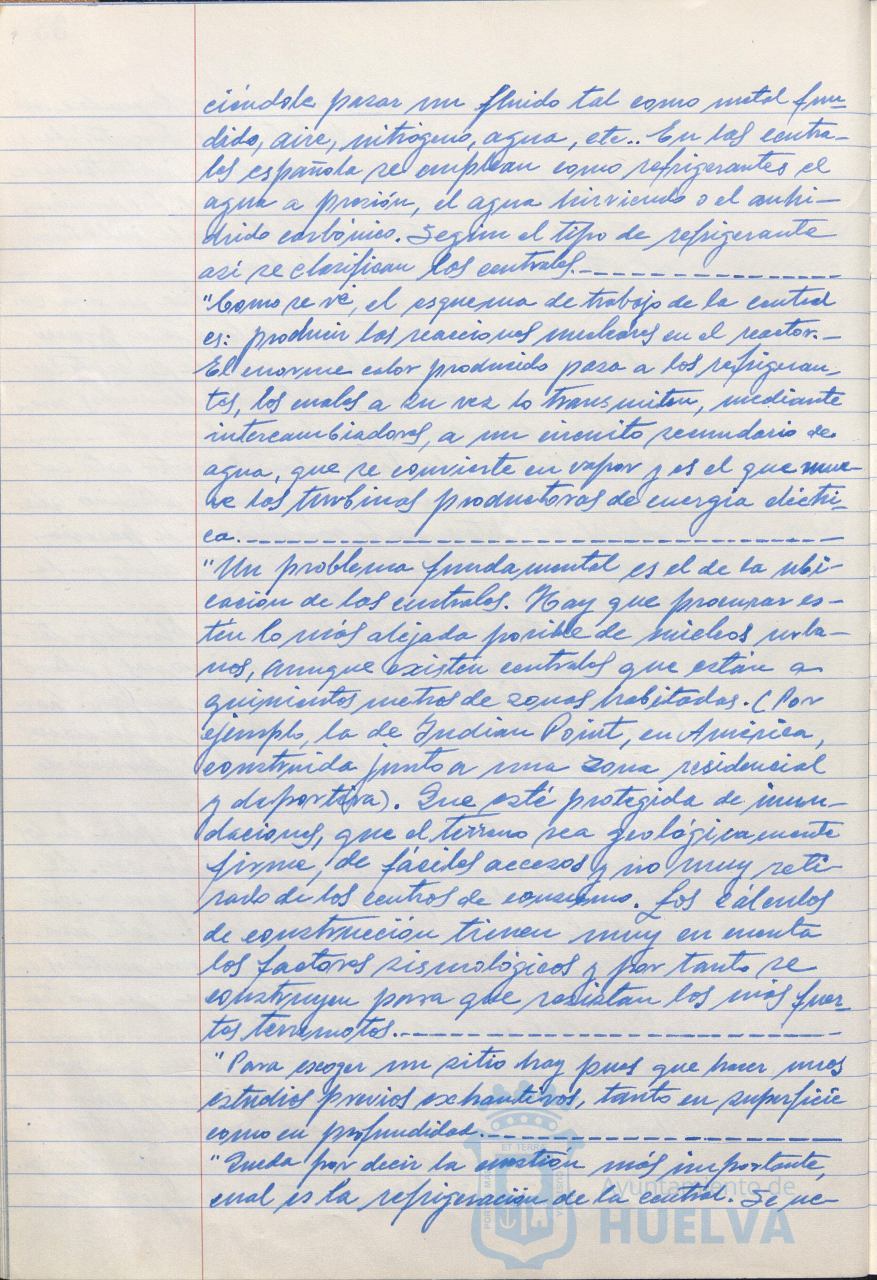 ciéndole pasar un fluido tal como metal fun-
dido, aire, nitrógeno, agua, etc.. En las centra-
les española se emplean como refrigerantes el
agua a presión, el agua hirviendo o el anhi-
drido carbónico. Según el tipo de refrigerante
así se clasifican las centrales.
"Como se vé, el esquema de trabajo de la central
es: producir las reacciones nucleares en el reactor.-
El enorme calor producido pasa a los refrigeran-
tes, los cuales a su vez lo transmiten, mediante
intercambiadores, a un circuito secundario de
agua, que se convierte en vapor y es el que mue-
ve las turbinas productoras de energía eléctri-
ca.
"Un problema fundamental es el de la ubi-
cación de las centrales. Hay que procurar es-
tén lo más alejada posible de núcleos urba-
nos, aunque existen centrales que están a
quinientos metros de zonas habitadas. (Por
ejemplo, la de Indian Point, en América,
construida junto a una zona residencial
y deportiva). Que esté protegida de inun-
daciones, que el terreno sea geológicamente
firme, de fáciles accesos y no muy reti-
rado de los centros de consumo. Los cálculos
de construcción tienen muy en cuenta
los factores sismológicos y por tanto se
construyen para que resistan los más fuer-
tes terremotos.
"Para escoger un sitio hay pues que hacer unos
estudios previos exhautivos, tanto en superficie
como en profundidad.
"Queda por decir la cuestión más importante,
cual es la refrigeración de la central. Se ne-
ET TERRA
Ayuntamiento de
HUELVA